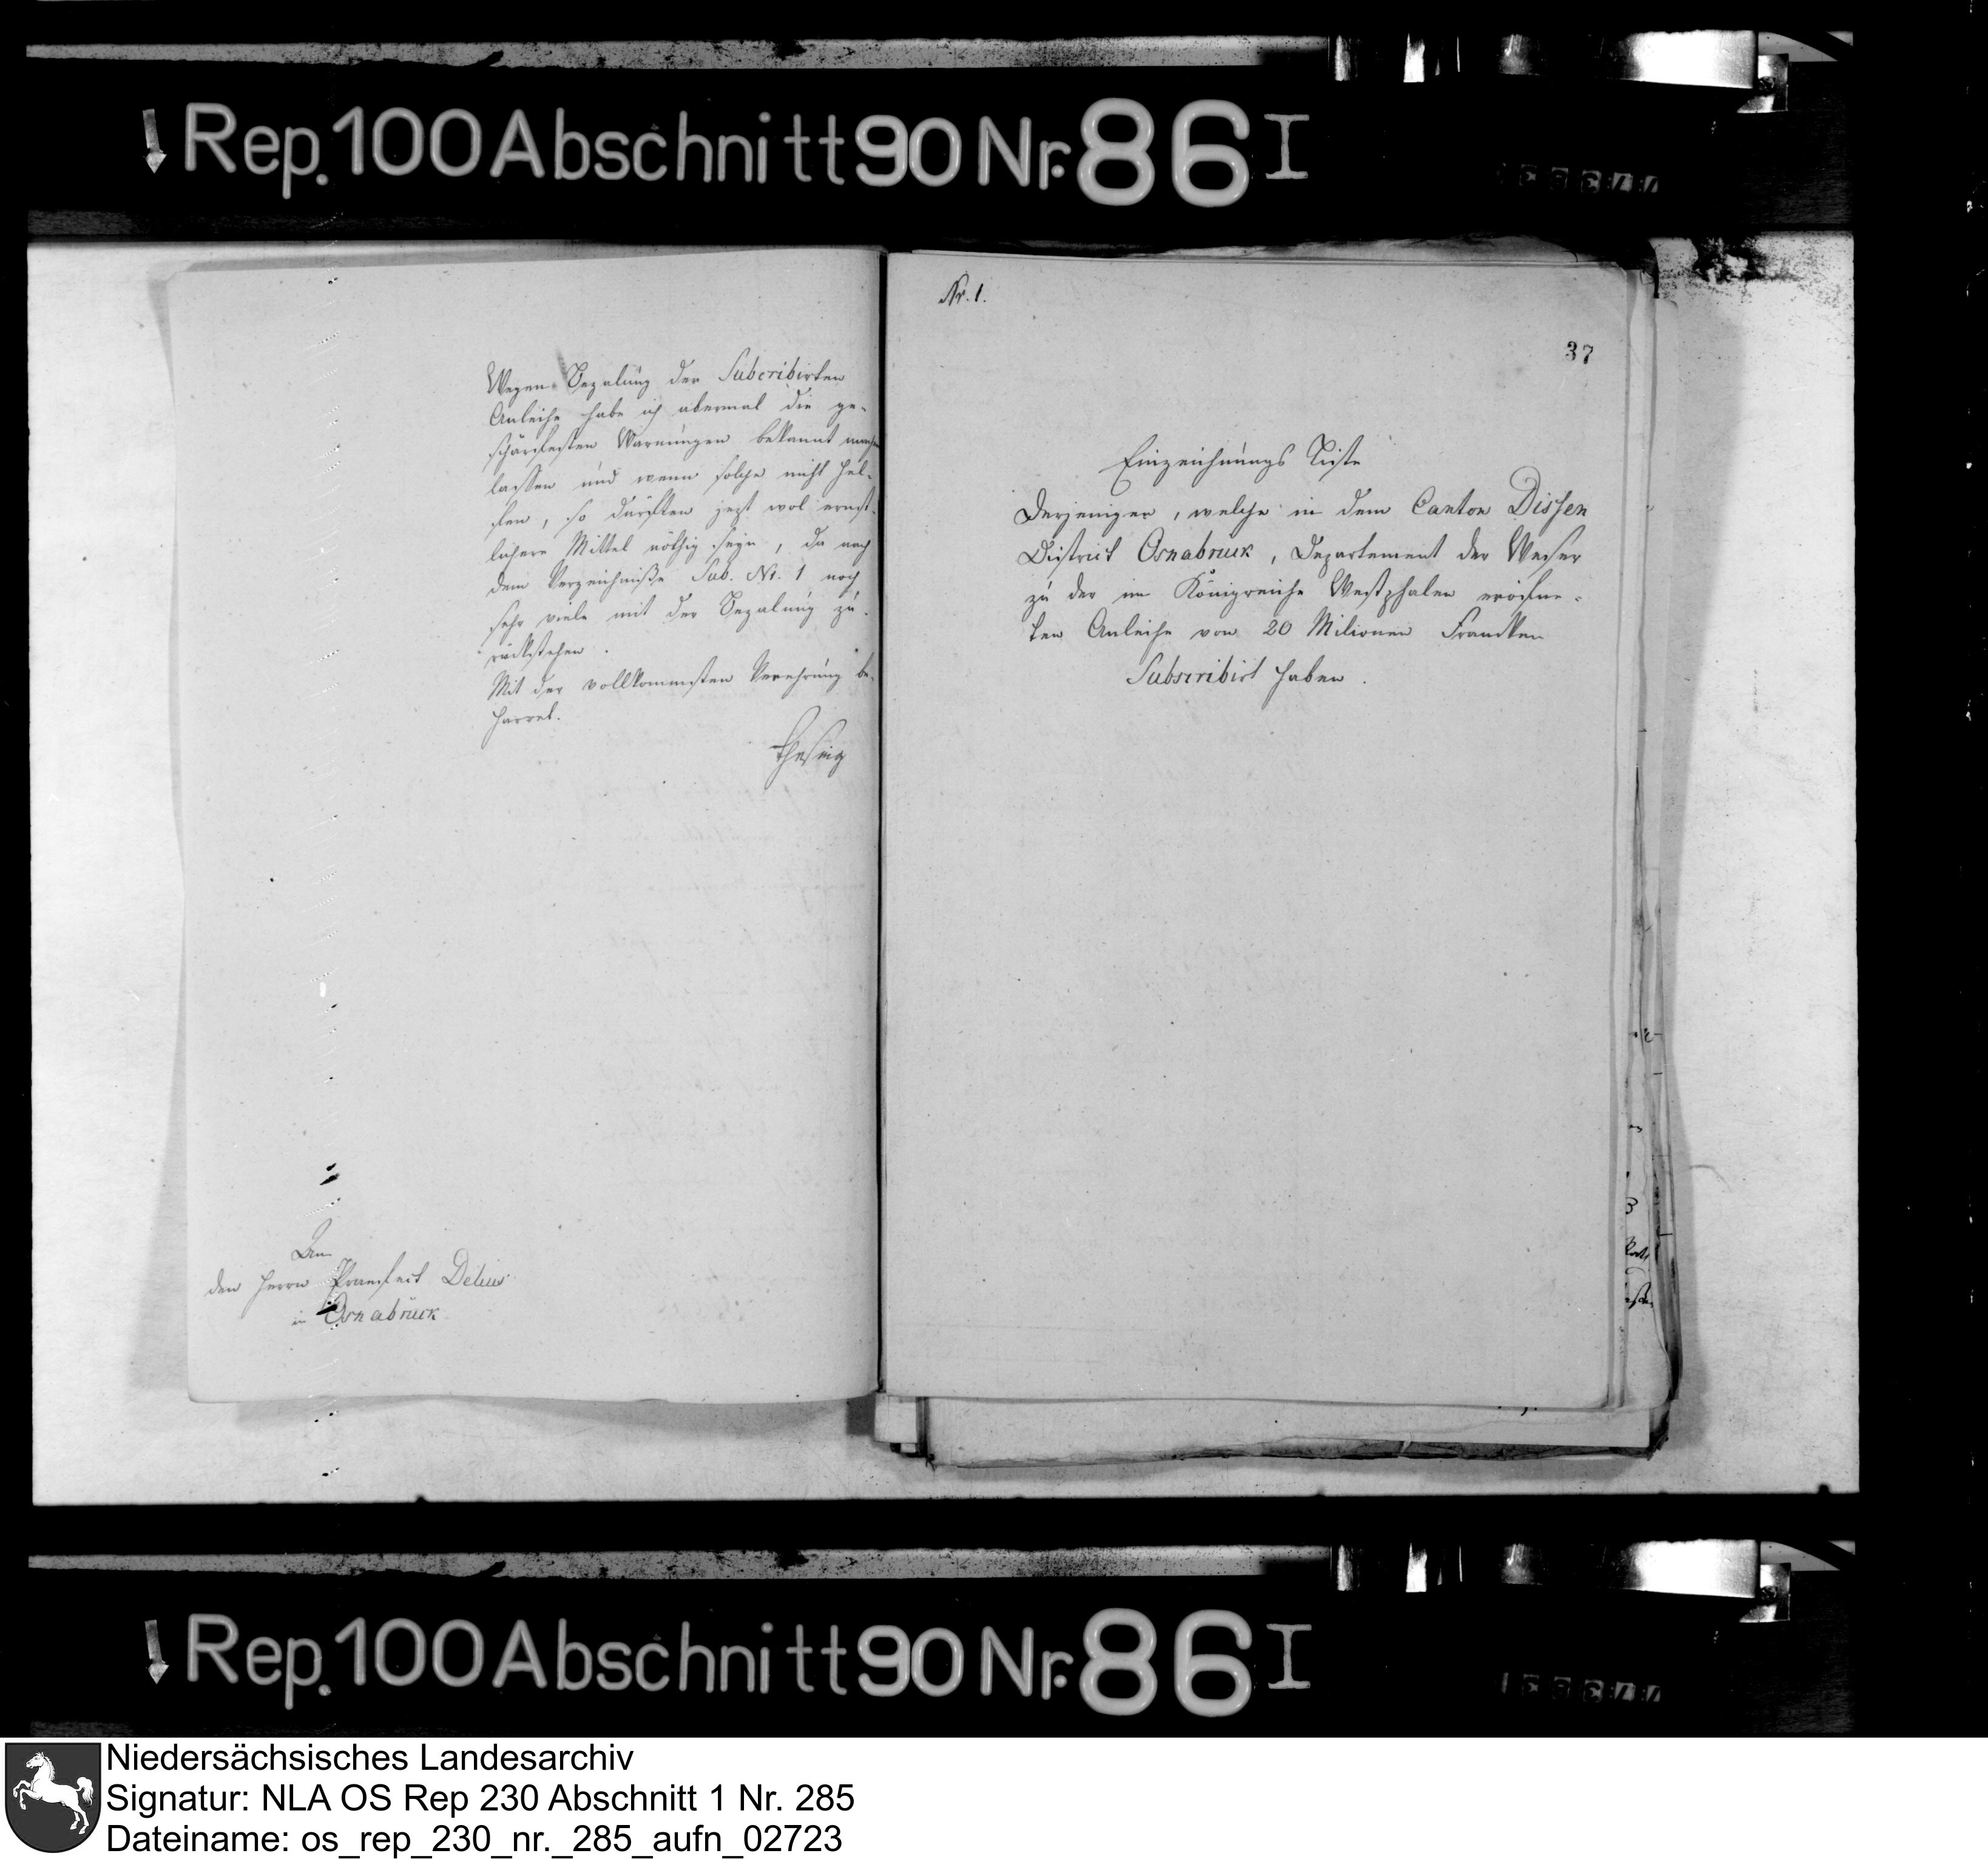 Rep. 100 Abschnitt 90 Nr. 86 I
Wegen Bezalung der Subcribirten
Anleihe habe ich abermal die ge-
schärfesten Warnungen bekannt machen
lassen und wenn solche nicht hel-
fen, so dürften jezt wol ernst-
lichere Mittel nöthig seyn, da nach
dem Verzeichniße Sub. Nr. 1 noch
sehr viele mit der Bezalung zu-
rückstehen.
Mit der vollkommensten Verehrung be-
harret.
An
den Herrn Praefect Delius
in Osnabrück
Nr. 1.
37
Einzeichnungs Liste
Derjenigen, welche in dem Canton Dissen
District Osnabrück, Departement der Weser
zu der im Königreiche Westphalen eröfne-
ten Anleihe von 20 Milionen Francken
Subscribirt haben.
Rep. 100 Abschnitt 90 Nr. 86 I
Niedersächsisches Landesarchiv
Signatur: NLA OS Rep 230 Abschnitt 1 Nr. 285
Dateiname: os_rep_230_nr._285_aufn_02723